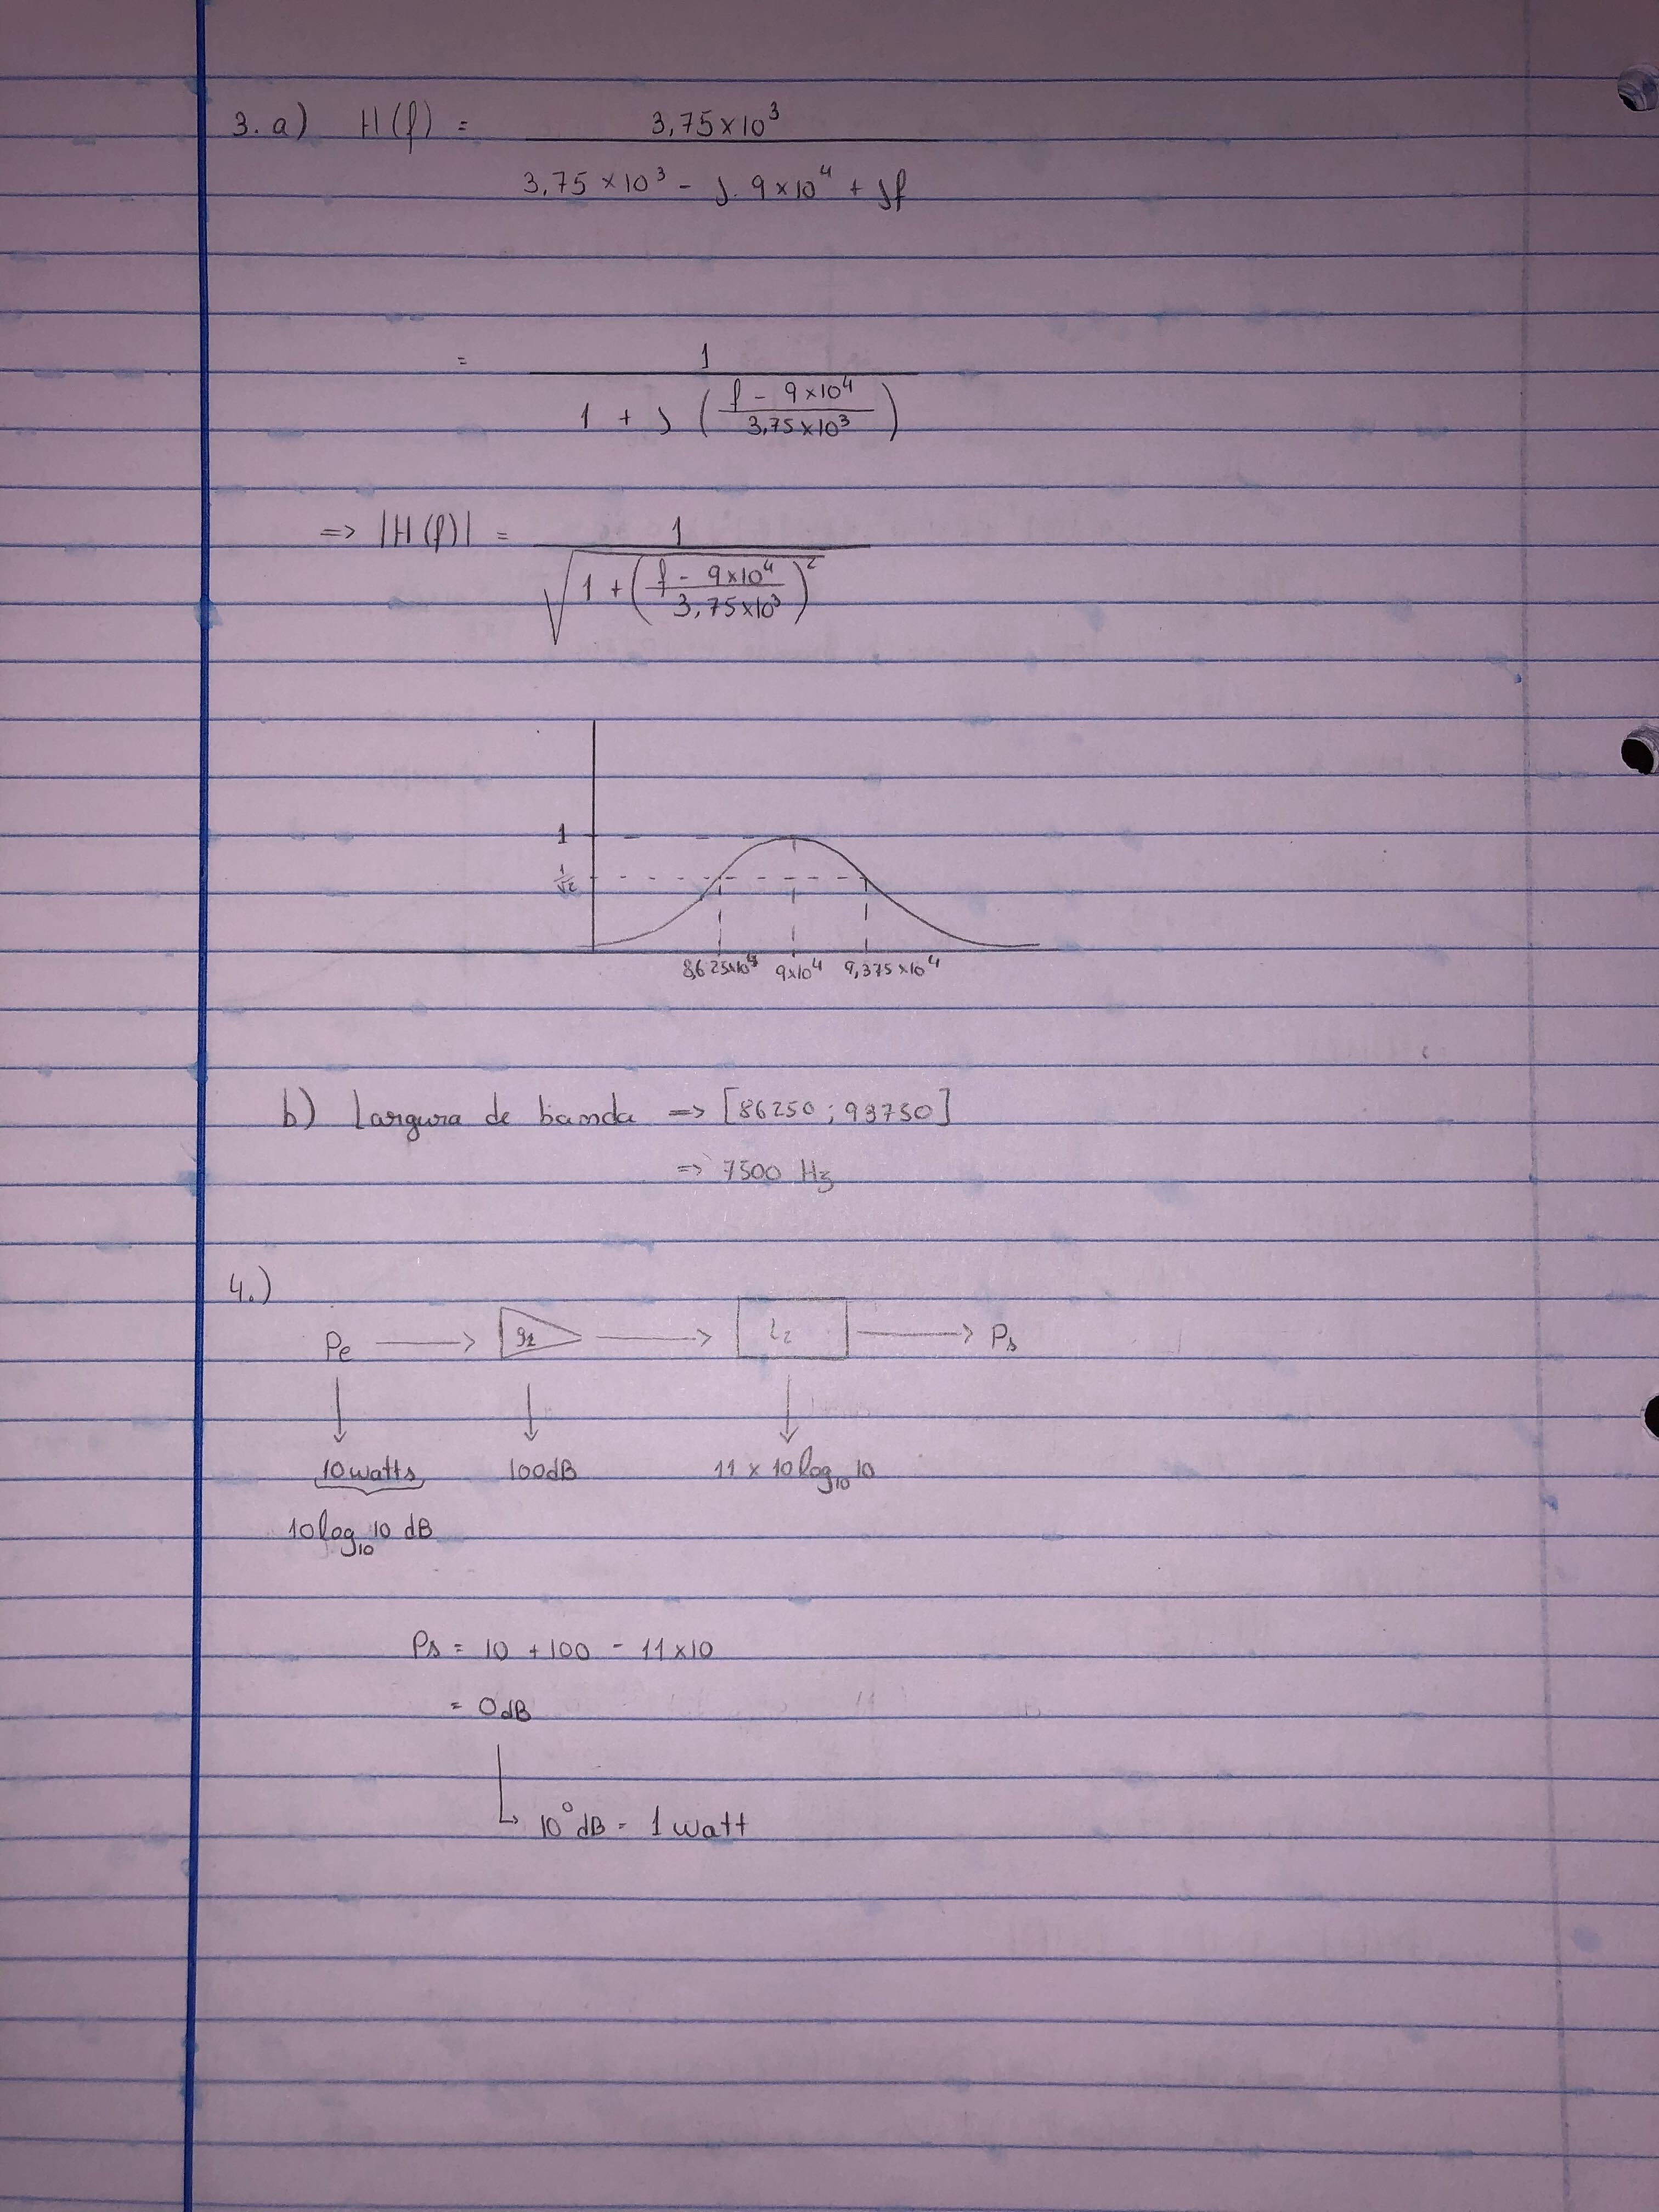 3. a) H(f) = 3,75×10³
3,75×10³ - j. 9×10⁴ + jf
= 1
1 + j (f - 9×10⁴ / 3,75×10³)
=> |H(f)| = 1
√1 + (f - 9×10⁴ / 3,75×10³)²
1
1/√2
8,625×10⁴ 9×10⁴ 9,375×10⁴
b) Largura de banda => [86250 ; 93750]
=> 7500 Hz
4.)
Pe → g1 → → Ps
10 watts 100dB 11 × 10 log₁₀ 10
10 log₁₀ 10 dB
Ps = 10 + 100 - 11×10
= 0dB
10⁰ dB = 1 watt